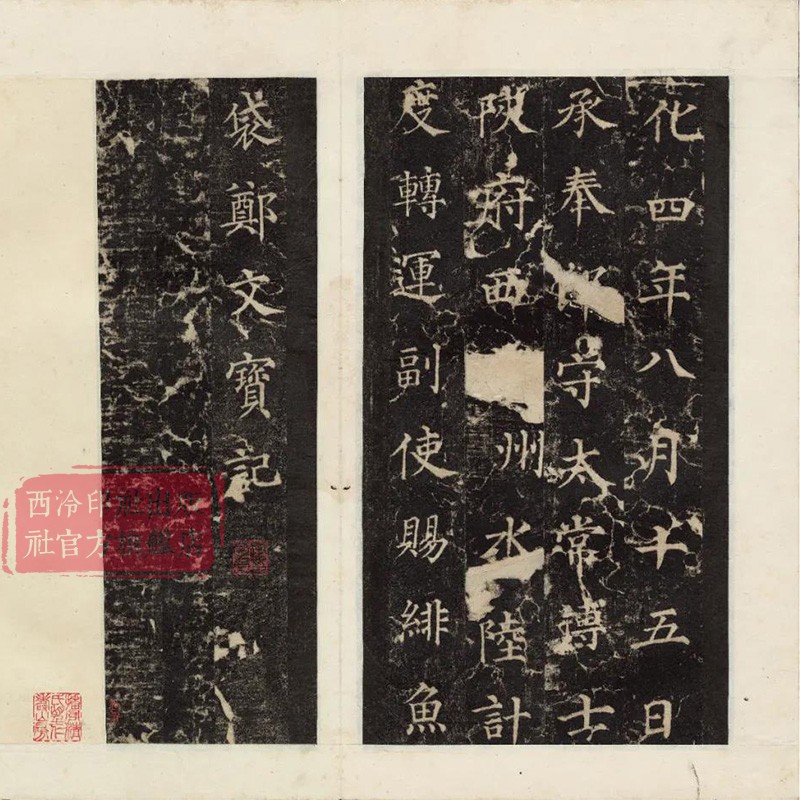 化四年八月十五日
承奉郎守太常博士
陝府西州水陸計
度轉運副使賜緋魚
袋鄭文寶記
西泠印社出版
社官方旗艦店